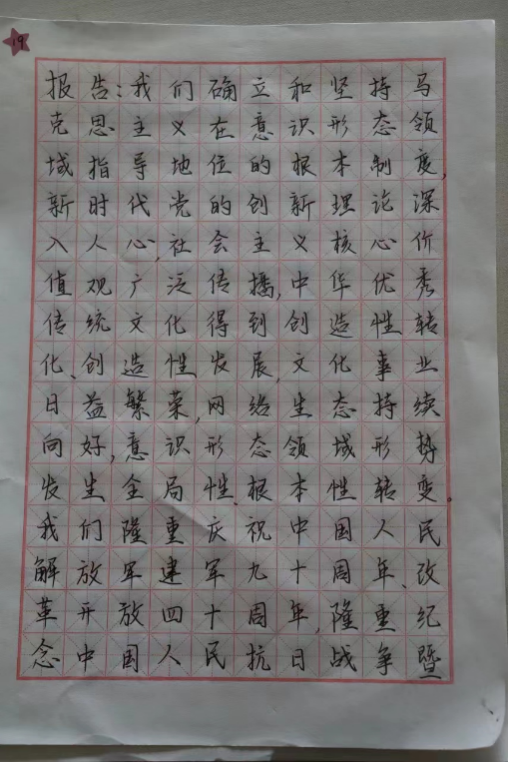 19
报告:我们确立和坚持马
克思主义在意识形态领
域指导地位的根本制度,
新时代党的创新理论深
入人心,社会主义核心价
值观广泛传播,中华优秀
传统文化得到创造性转
化、创造性发展,文化事业
日益繁荣,网络生态持续
向好,意识形态领域形势
发生全局性、根本性转变。
我们隆重庆祝中国人民
解放军建军九十周年、改
革开放四十周年,隆重纪
念中国人民抗日战争暨